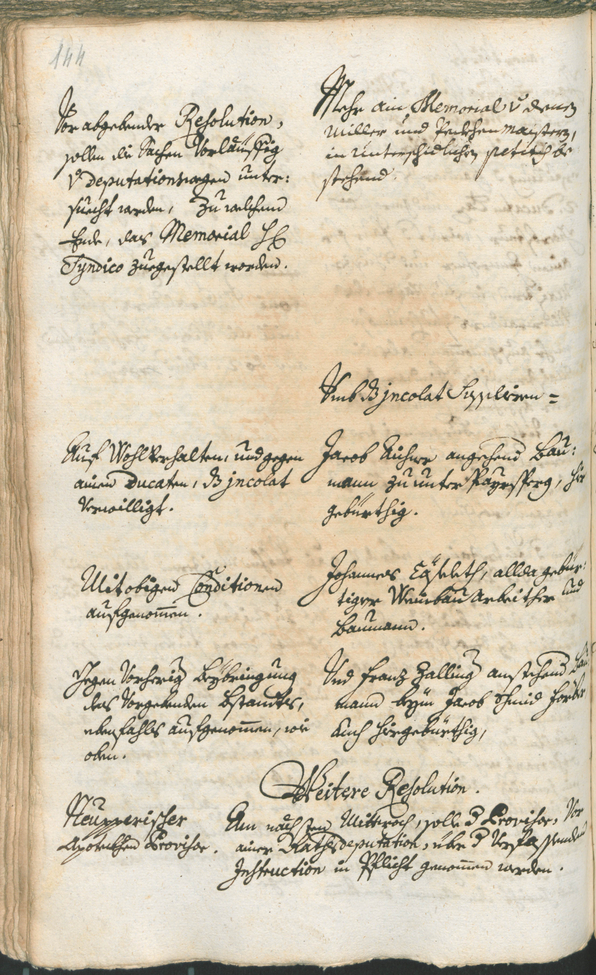 144
Vor abgebender Resolution,
sollen die Sachen Vorläuffig
Deputationswegen unter:
suecht werden, Zu welchem
Ende, das Memorial H
Syndico zuegestellt worden.
Mehr ain Memorial v denen
Miller und Peckhen Maistern,
in Unterschidlichen petitis be
stehend.
Umb dz jncolat Supplicirn =
Auf Wohlverhalten, und gegen
ainen Ducaten, dz jncolat
Verwilligt.
Jacob angehend Bau:
mann zu unter Payrsperg, hie
gebürthig.
Mit obigen Conditionen
aufgenomen.
Johannes allda gebür:
tiger Weinbau Arbeither und
Baumann.
Gegen Vorherig Beybringung
des Vorgebenden bstandts,
ebenfahls aufgenomen, wie
oben.
Und Franz angehend Bau
mann beym Jacob Schmid
Auch hiegebürthig,
Weitere Resolution.
Apotheckhen Provisor.
Am nächsten Mittwoch, solle d Provisor, Vor
ainer Rathsdeputation, über d Verfassenden
Jnstruction in Pflicht genomen werden.